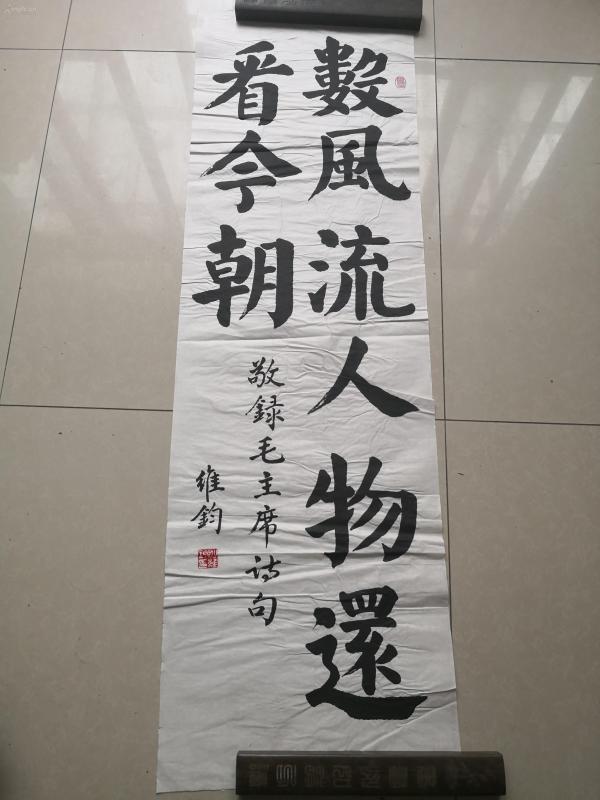 數風流人物還
看今朝
敬録毛主席诗句
維鈞